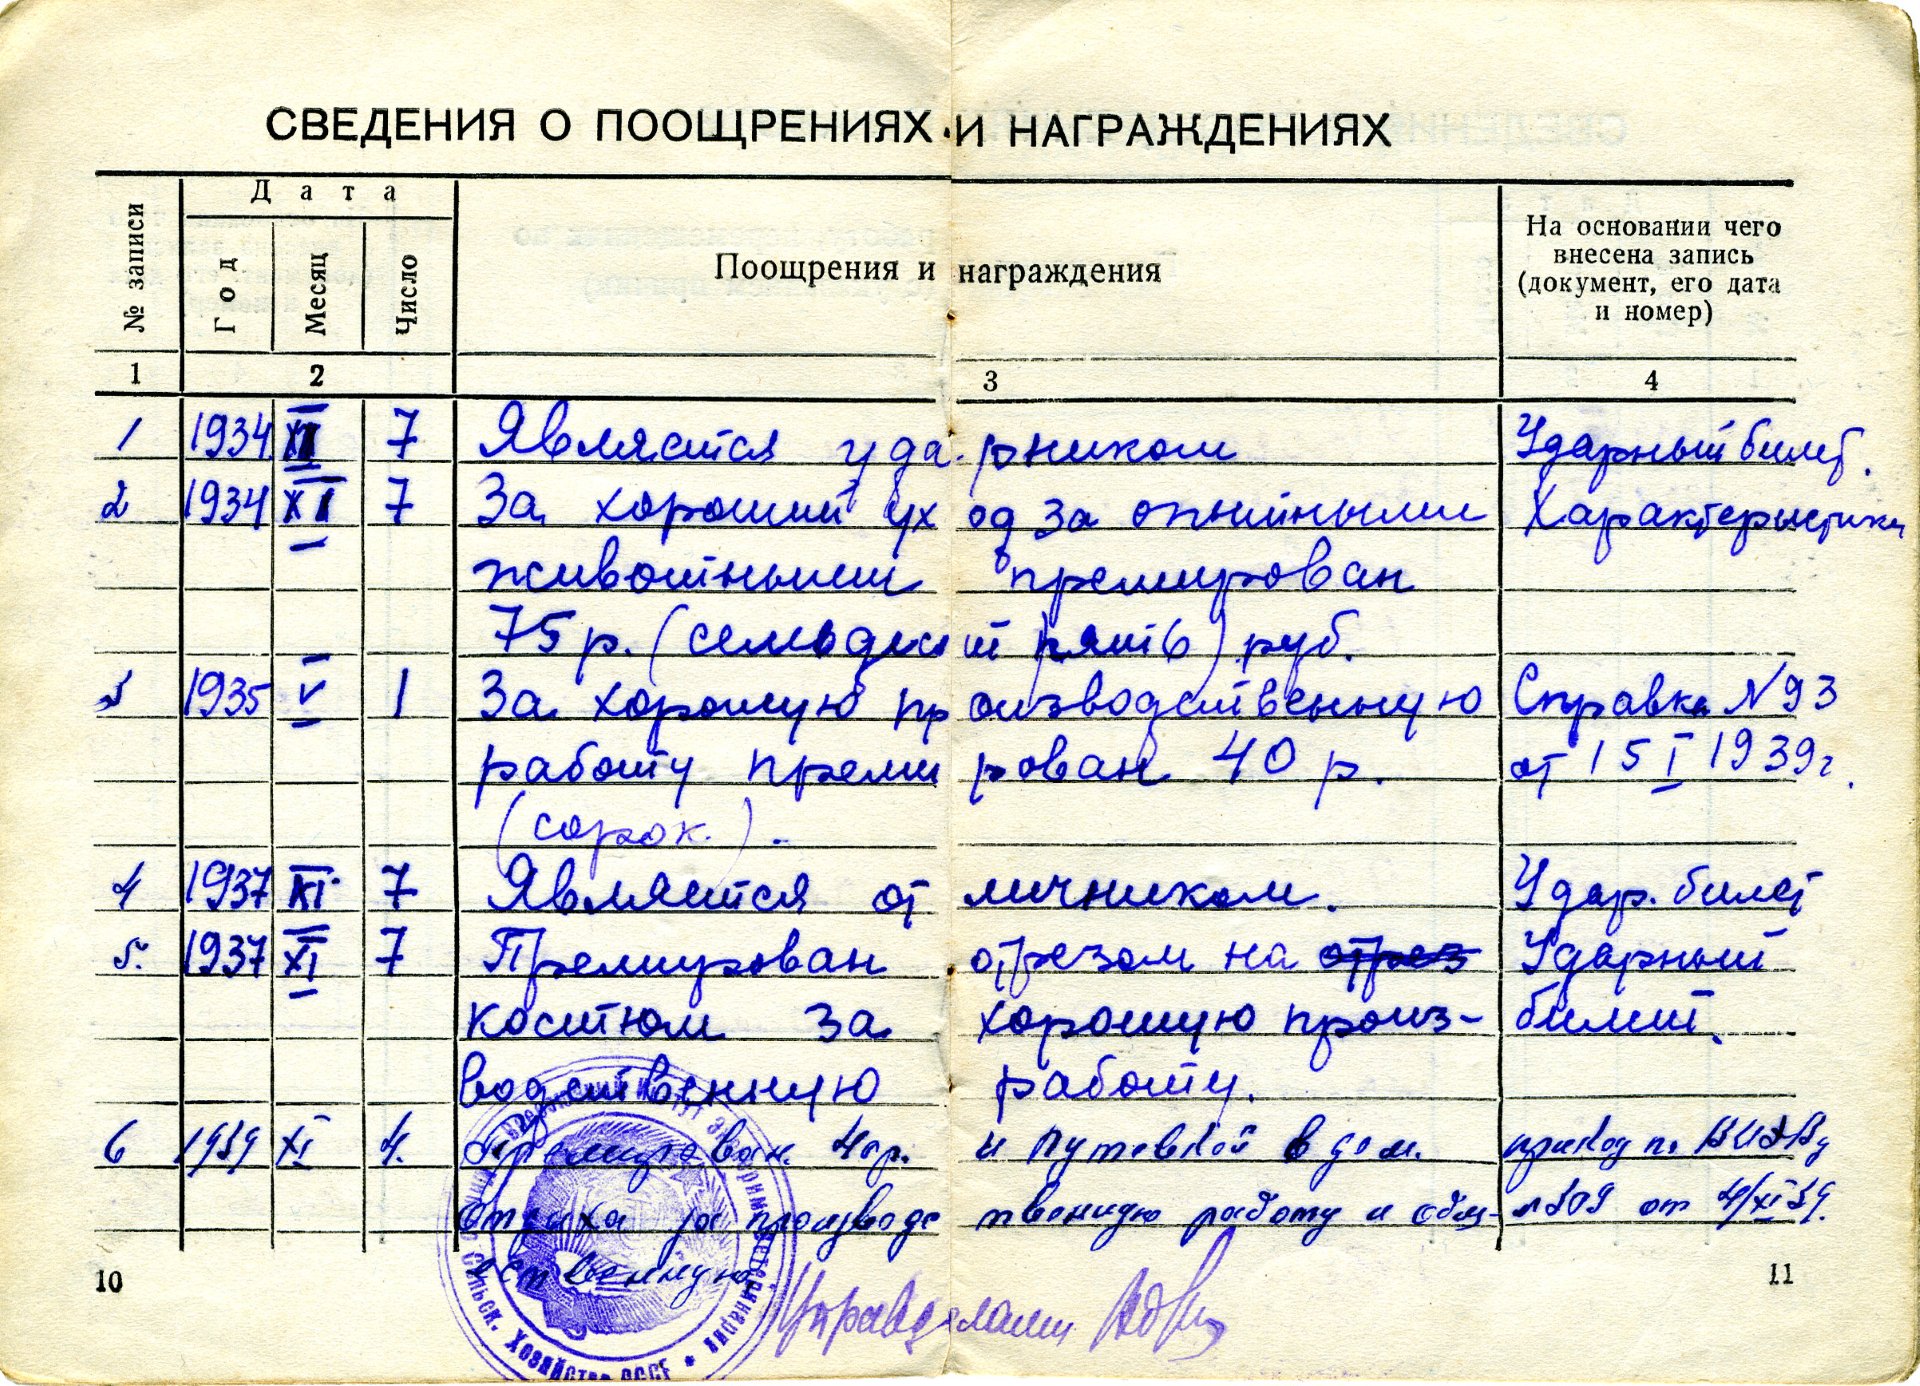 СВЕДЕНИЯ О ПООЩРЕНИЯХ И НАГРАЖДЕНИЯХ
№ записи
Дата
Год
Месяц
Число
Поощрения и награждения
На основании чего
внесена запись
(документ, его дата
и номер)
1 2 3 4
1 1934 XI 7 Является ударником Ударный билет.
2 1934 XI 7 За хороший уход за опытными Характеристика
животными премирован
75 р. (семьдесят пять) руб.
3 1935 V 1 За хорошую производственную Справка N 93
работу премирован 40 р. от 15 I 1939 г.
(сорок.).
4 1937 XI 7 Является отличником. Удар. билет
5. 1937 XI 7 Премирован отрезом на отрез Ударный
костюм за хорошую произ- билет.
водственную работу.
6 1939 XI 4. Премирован. 40 р. и путевкой в дом. приказ по ВИЭВу
отдыха за производственную работу и общ- № 309 от 4/XI 39.
ественную
Управделами
10
11
Сельск. Хозяйства СССР